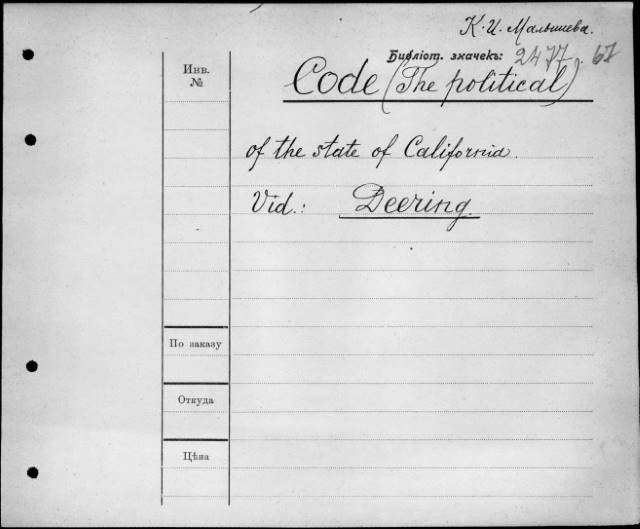 К. И. Малышева.
Библіот. значекъ: 2477. 67
Инв. №
Code (The political)
of the state of California.
Vid.: Deering.
По заказу
Откуда
Цѣна